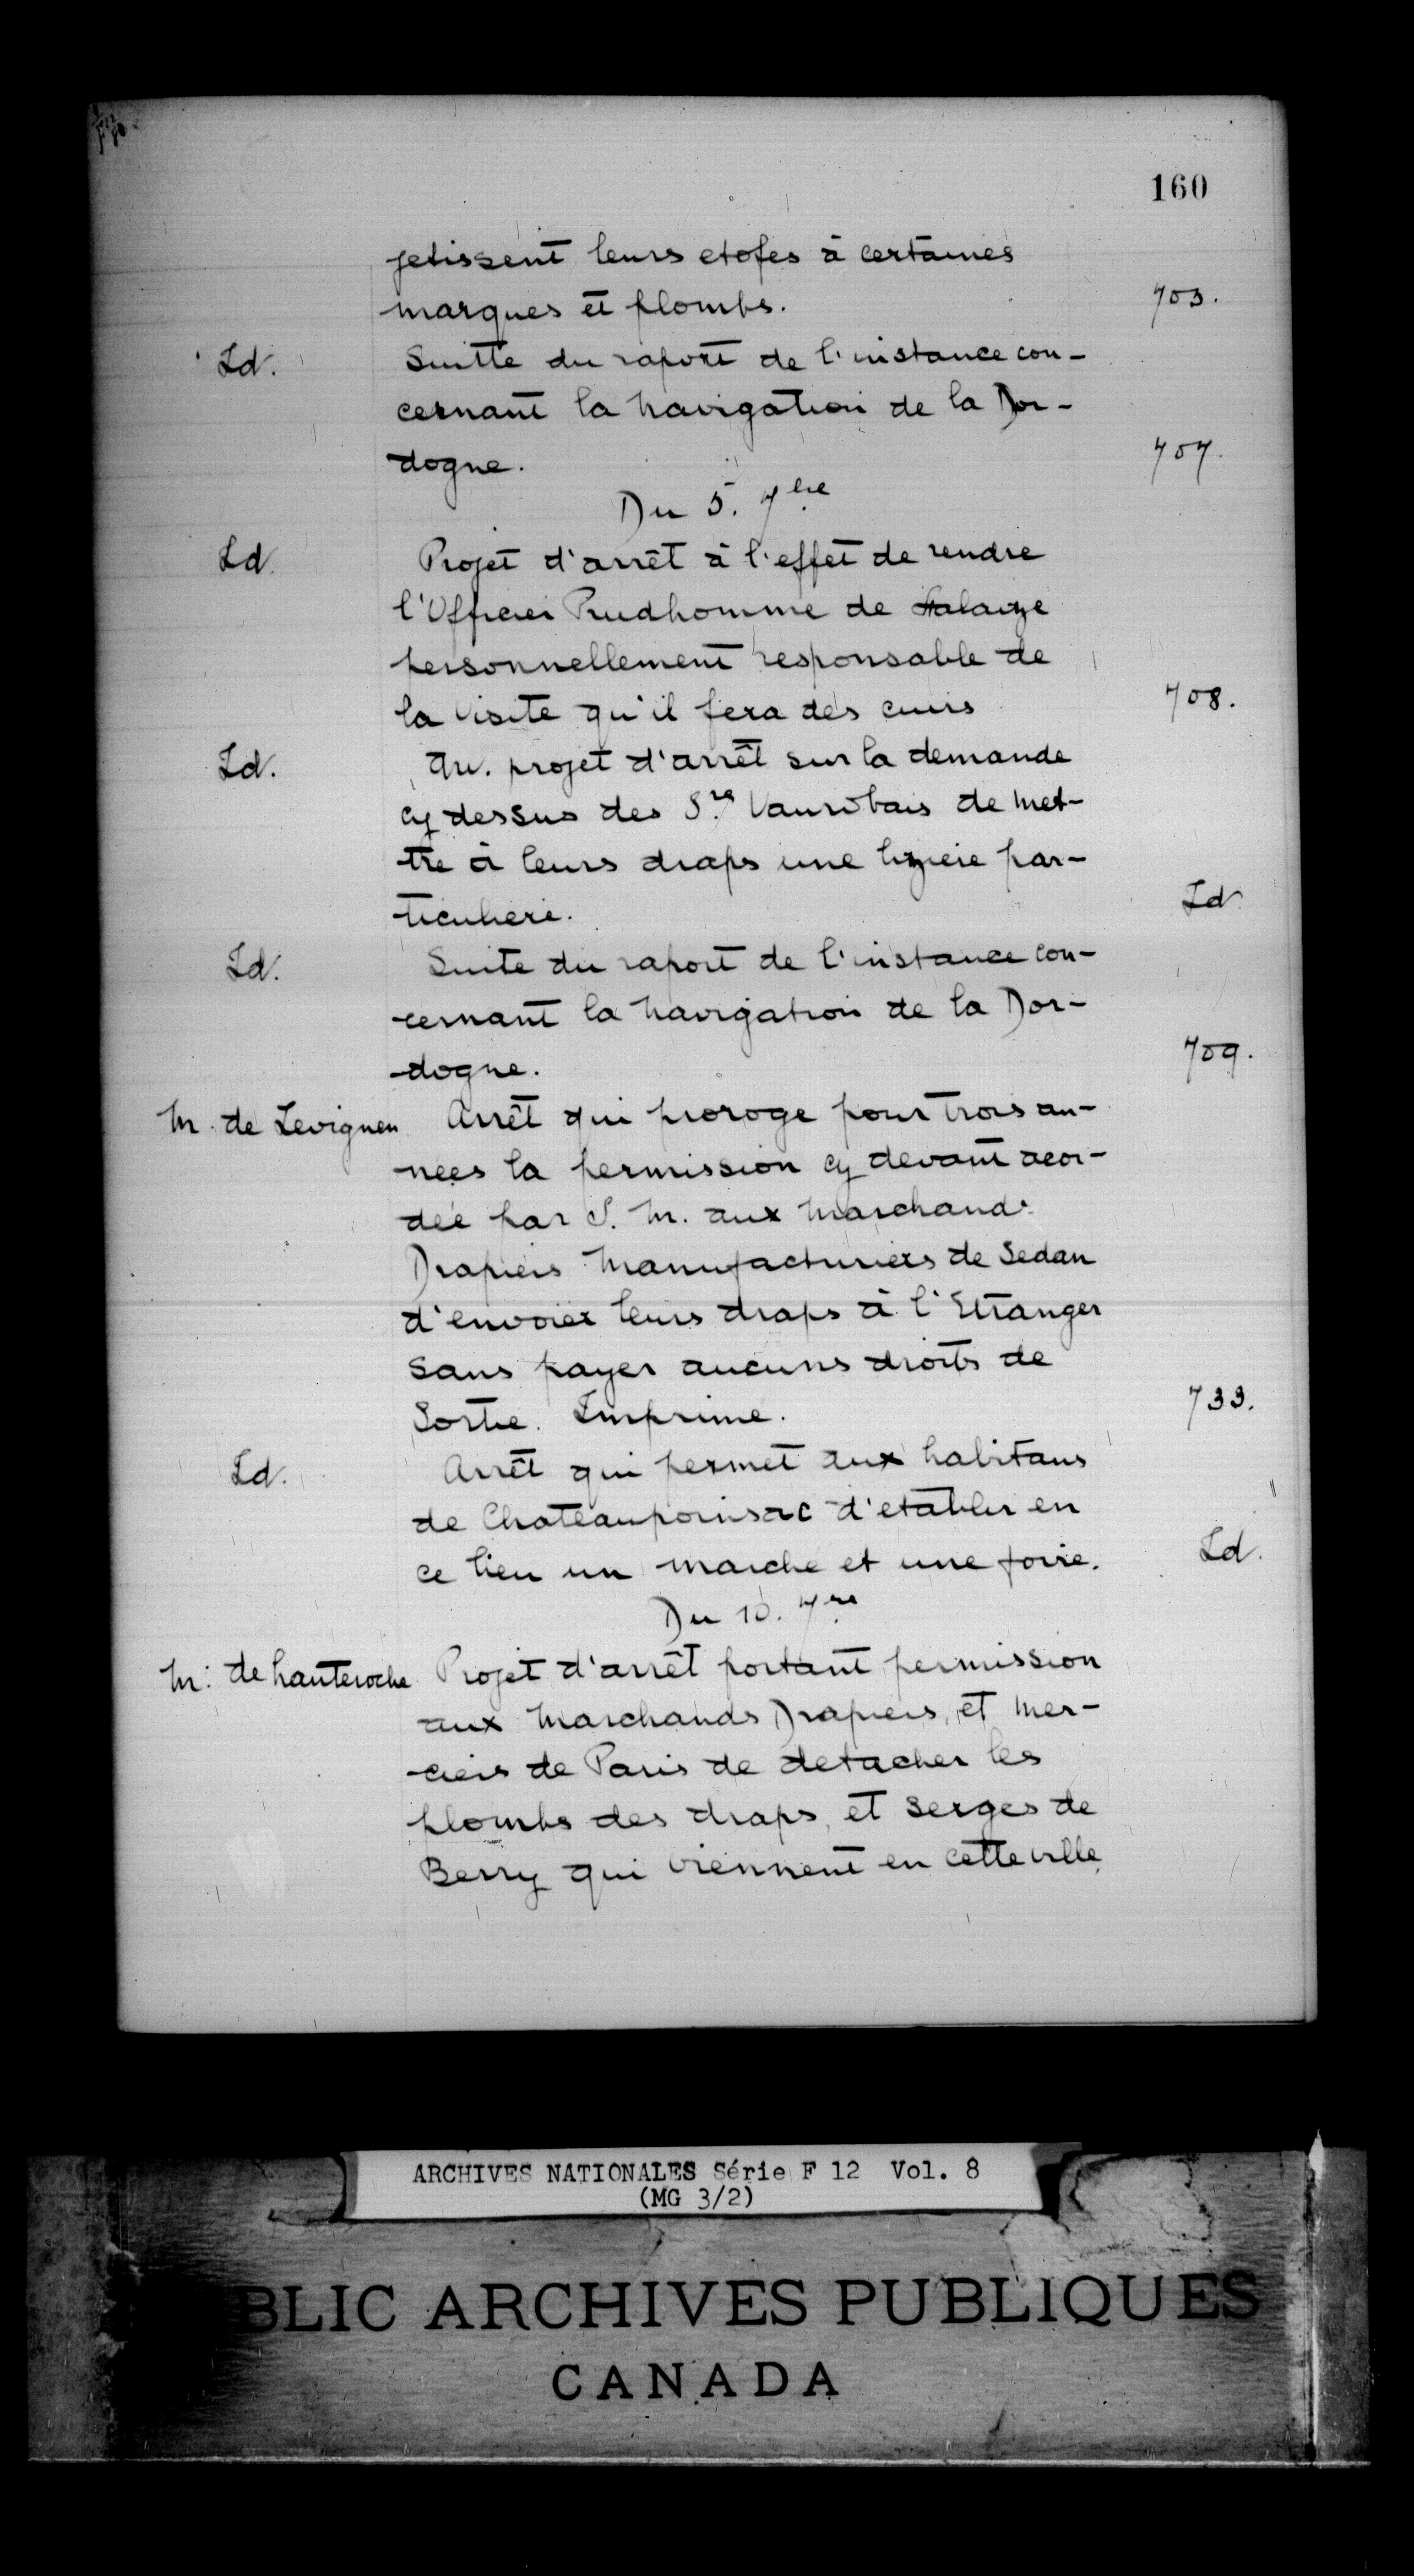 160
jetissent leurs etofes à certaines
marques et plombs. 703.
Id. Suitte du raport de l'instance con-
cernant la navigation de la Dor-
dogne. 707.
Du 5. 7bre
Id. Projet d'arrêt à l'effet de rendre
l'Officier Prudhomme de falaize
personnellement responsable de
la visite qu'il fera des cuirs 708.
Id. Au. projet d'arrêt sur la demande
cy dessus des Srs Vanrobais de met-
tre à leurs draps une liziere par-
ticuliere. Id
Id. Suite du raport de l'instance con-
cernant la navigation de la Dor-
dogne. 709.
M. de Levignen Arrêt qui proroge pour trois an-
nées la permission cy devant acor-
dée par S. M. aux Marchands
Drapiers Manufacturiers de Sedan
d'envoier leurs draps à l'Etranger
sans payer aucuns droits de
Sortie. Imprimé. 733.
Id. Arrêt qui permet aux habitans
de Chateauponsac d'etablir en
ce lieu un marché et une foire. Id.
Du 10. 7re
M. de hauteroche Projet d'arrêt portant permission
aux Marchands Drapiers, et Mer-
ciers de Paris de detacher les
plombs des draps, et serges de
Berry qui viennent en cette ville
ARCHIVES NATIONALES Série F 12 Vol. 8
(MG 3/2)
BLIC ARCHIVES PUBLIQUES
CANADA